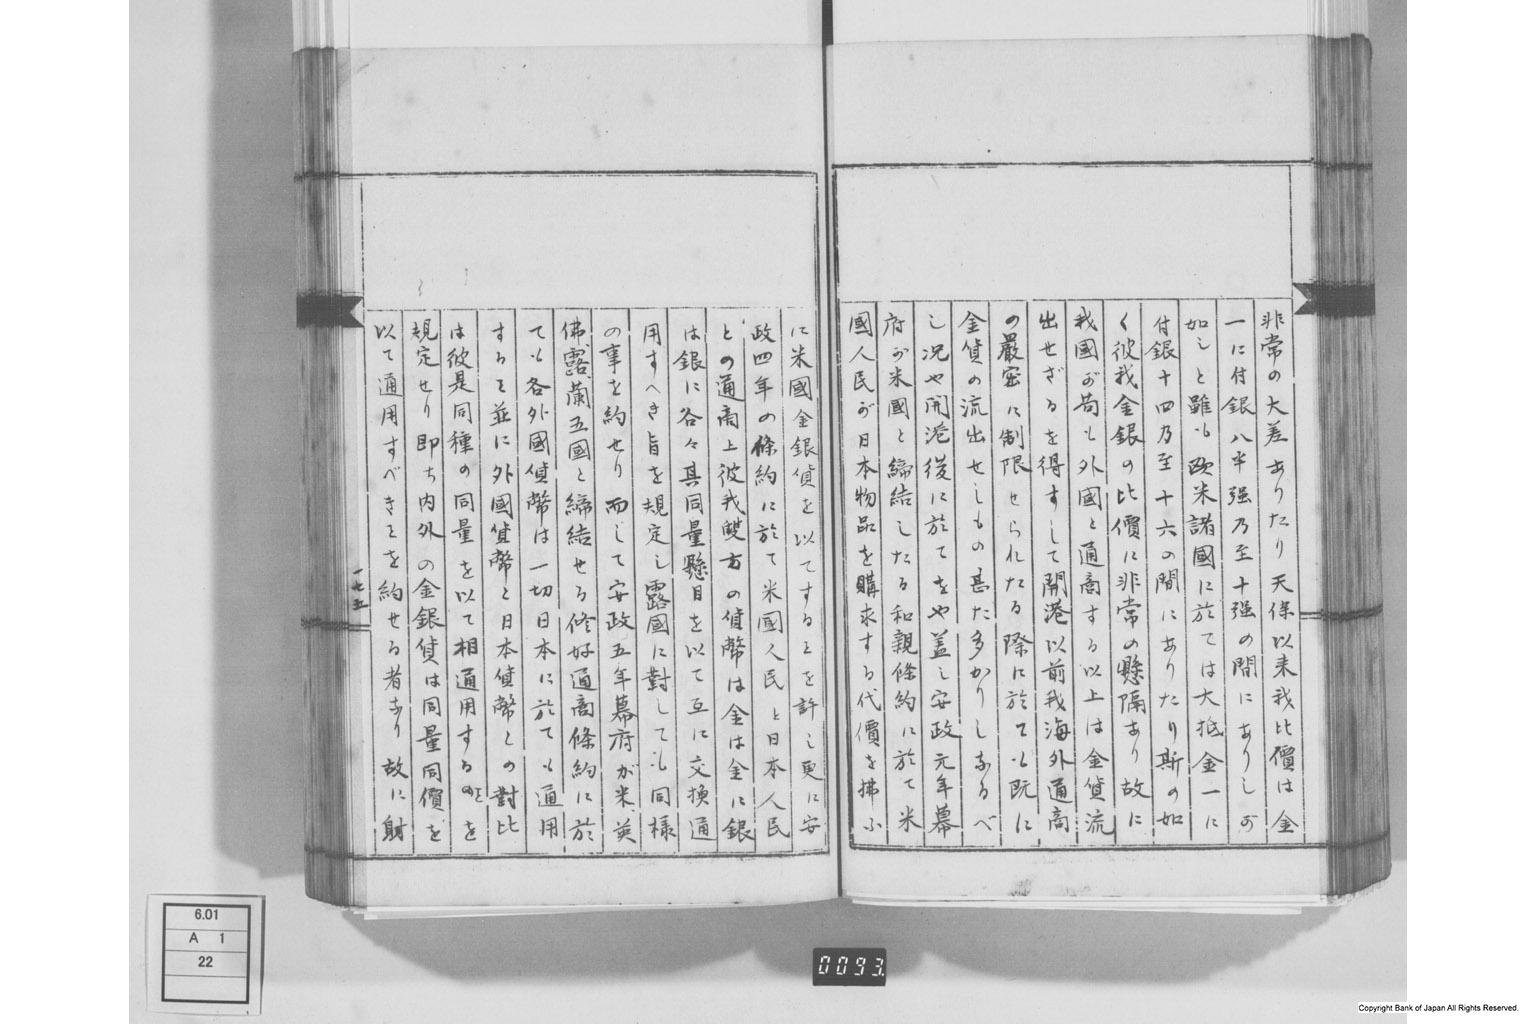 非常の大差ありたり天保以来我比價は金
一に付銀八半强乃至十强の間にありしが
如しと雖も欧米諸國に於ては大抵金一に
付銀十四乃至十六の間にありたり斯の如
く彼我金銀の比價に非常の懸隔あり故に
我國が苟も外國と通商する以上は金貨流
出せざるを得すして開港以前我海外通商
の嚴密に制限せられたる際に於ても既に
金貨の流出せしもの甚た多かりしなるべ
し况や開港後に於てをや蓋し安政元年幕
府が米國と締結したる和親條約に於て米
國人民が日本物品を購求する代價を拂ふ
に米國金銀貨を以てすることを許し更に安
政四年の條約に於て米國人民と日本人民
との通商上彼我雙方の貨幣は金は金に銀
は銀に各々其同量懸目を以て互に交換通
用すへき旨を規定し露國に對しても同様
の事を約せり而して安政五年幕府が米、英
佛、露、蘭五國と締結せる修好通商條約に於
ても各外國貨幣は一切日本に於ても通用
すること並に外國貨幣と日本貨幣との對比
は彼是同種の同量を以て相通用することを
規定せり即ち内外の金銀貨は同量同價を
以て通用すべきことを約せる者なり故に射
一七五
6.01
A 1
22
0093.
Copyright Bank of Japan All Rights Reserved.